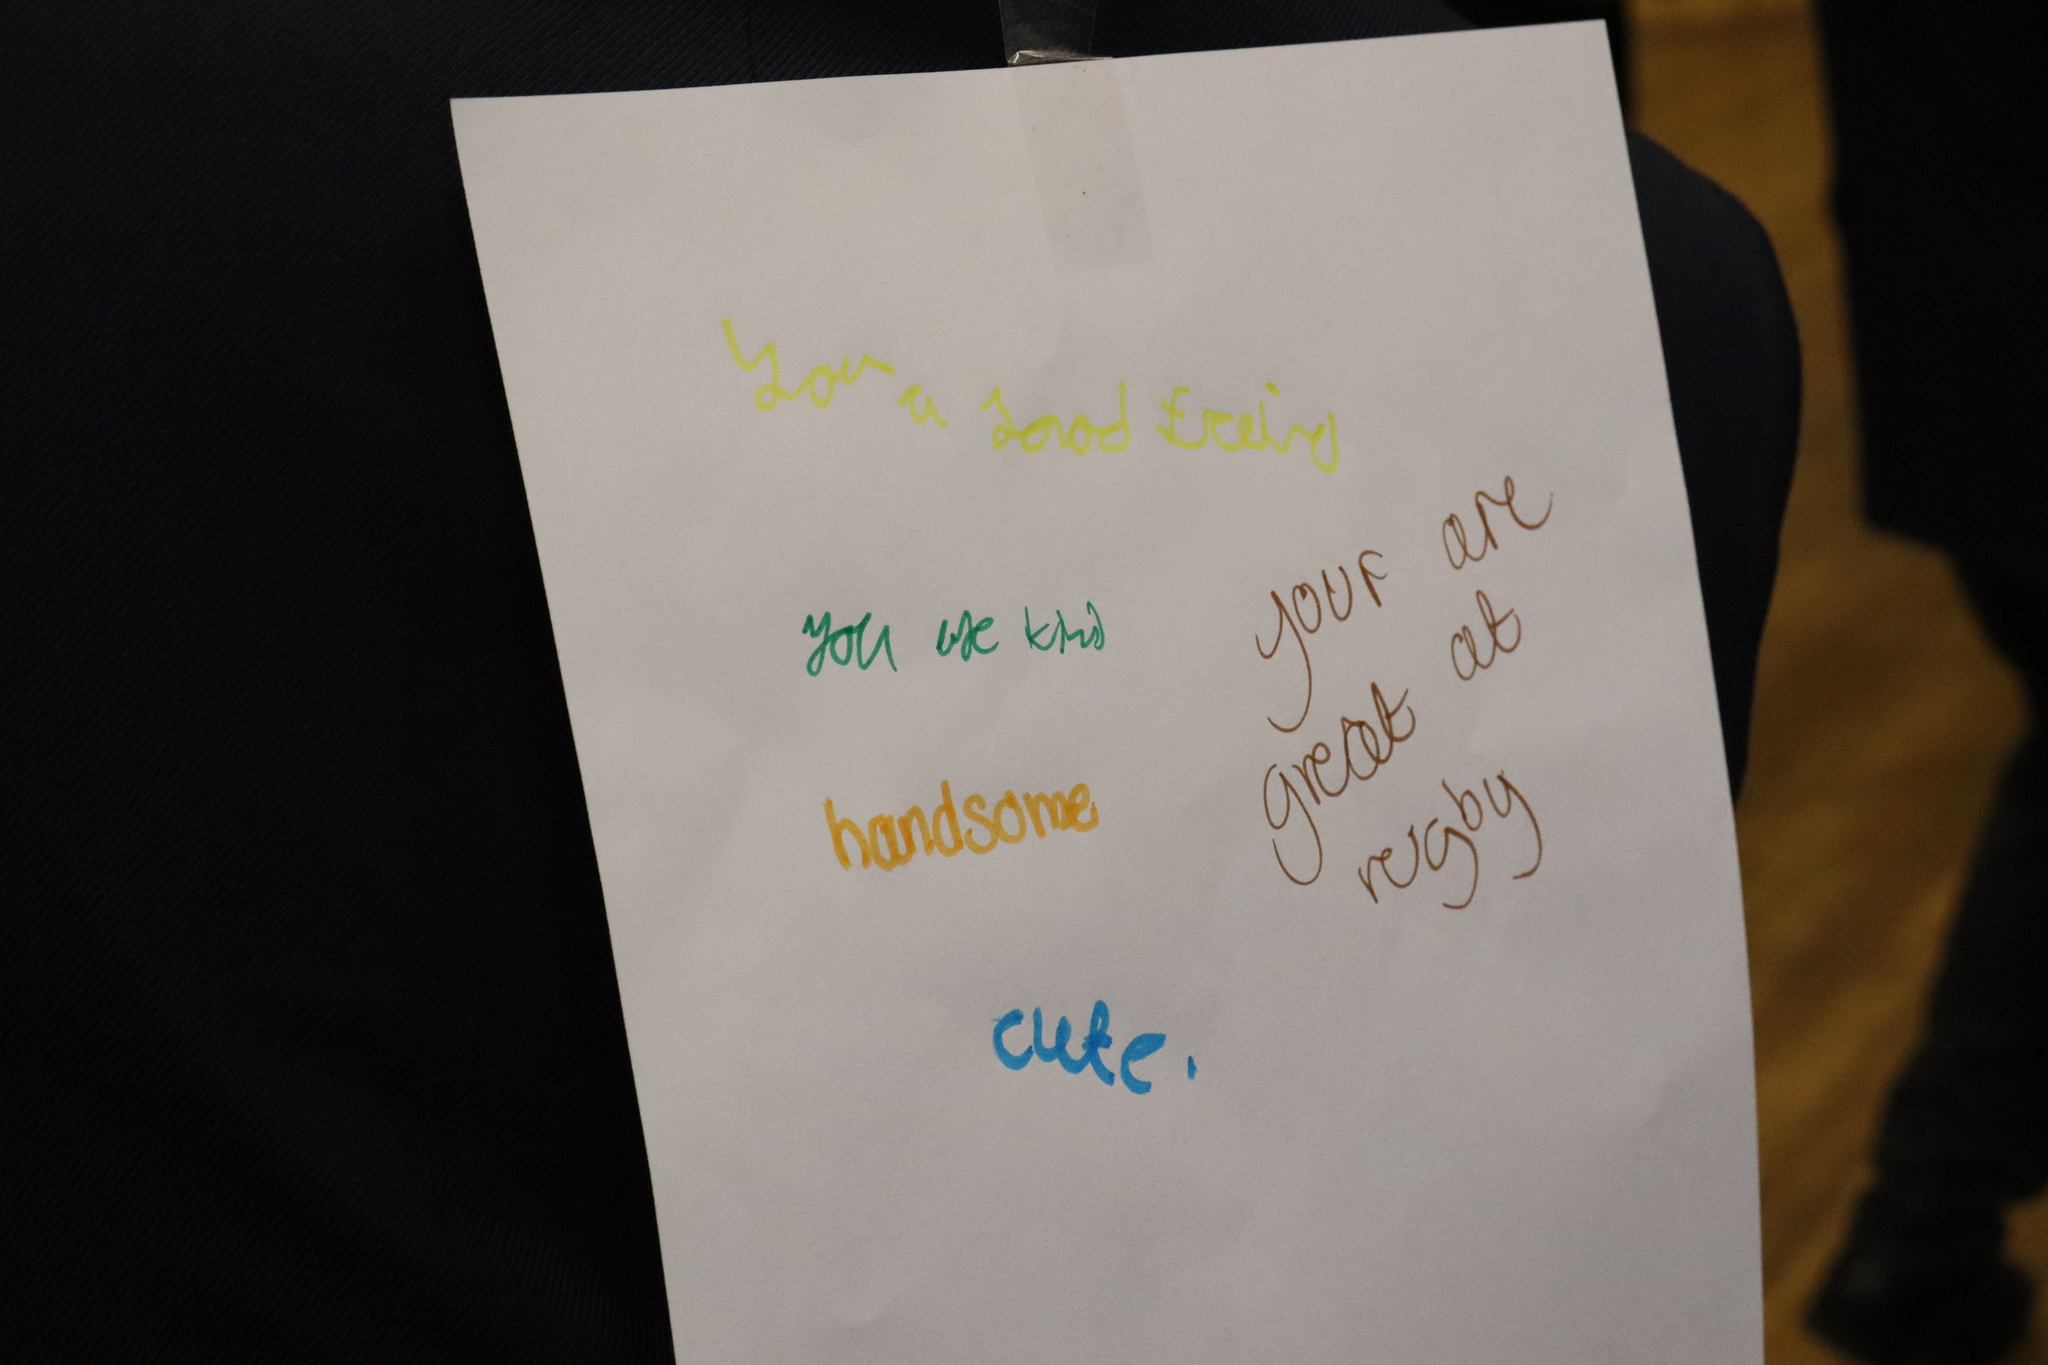 You a good
you are kind
your are
great at
rugby
handsome
cute.